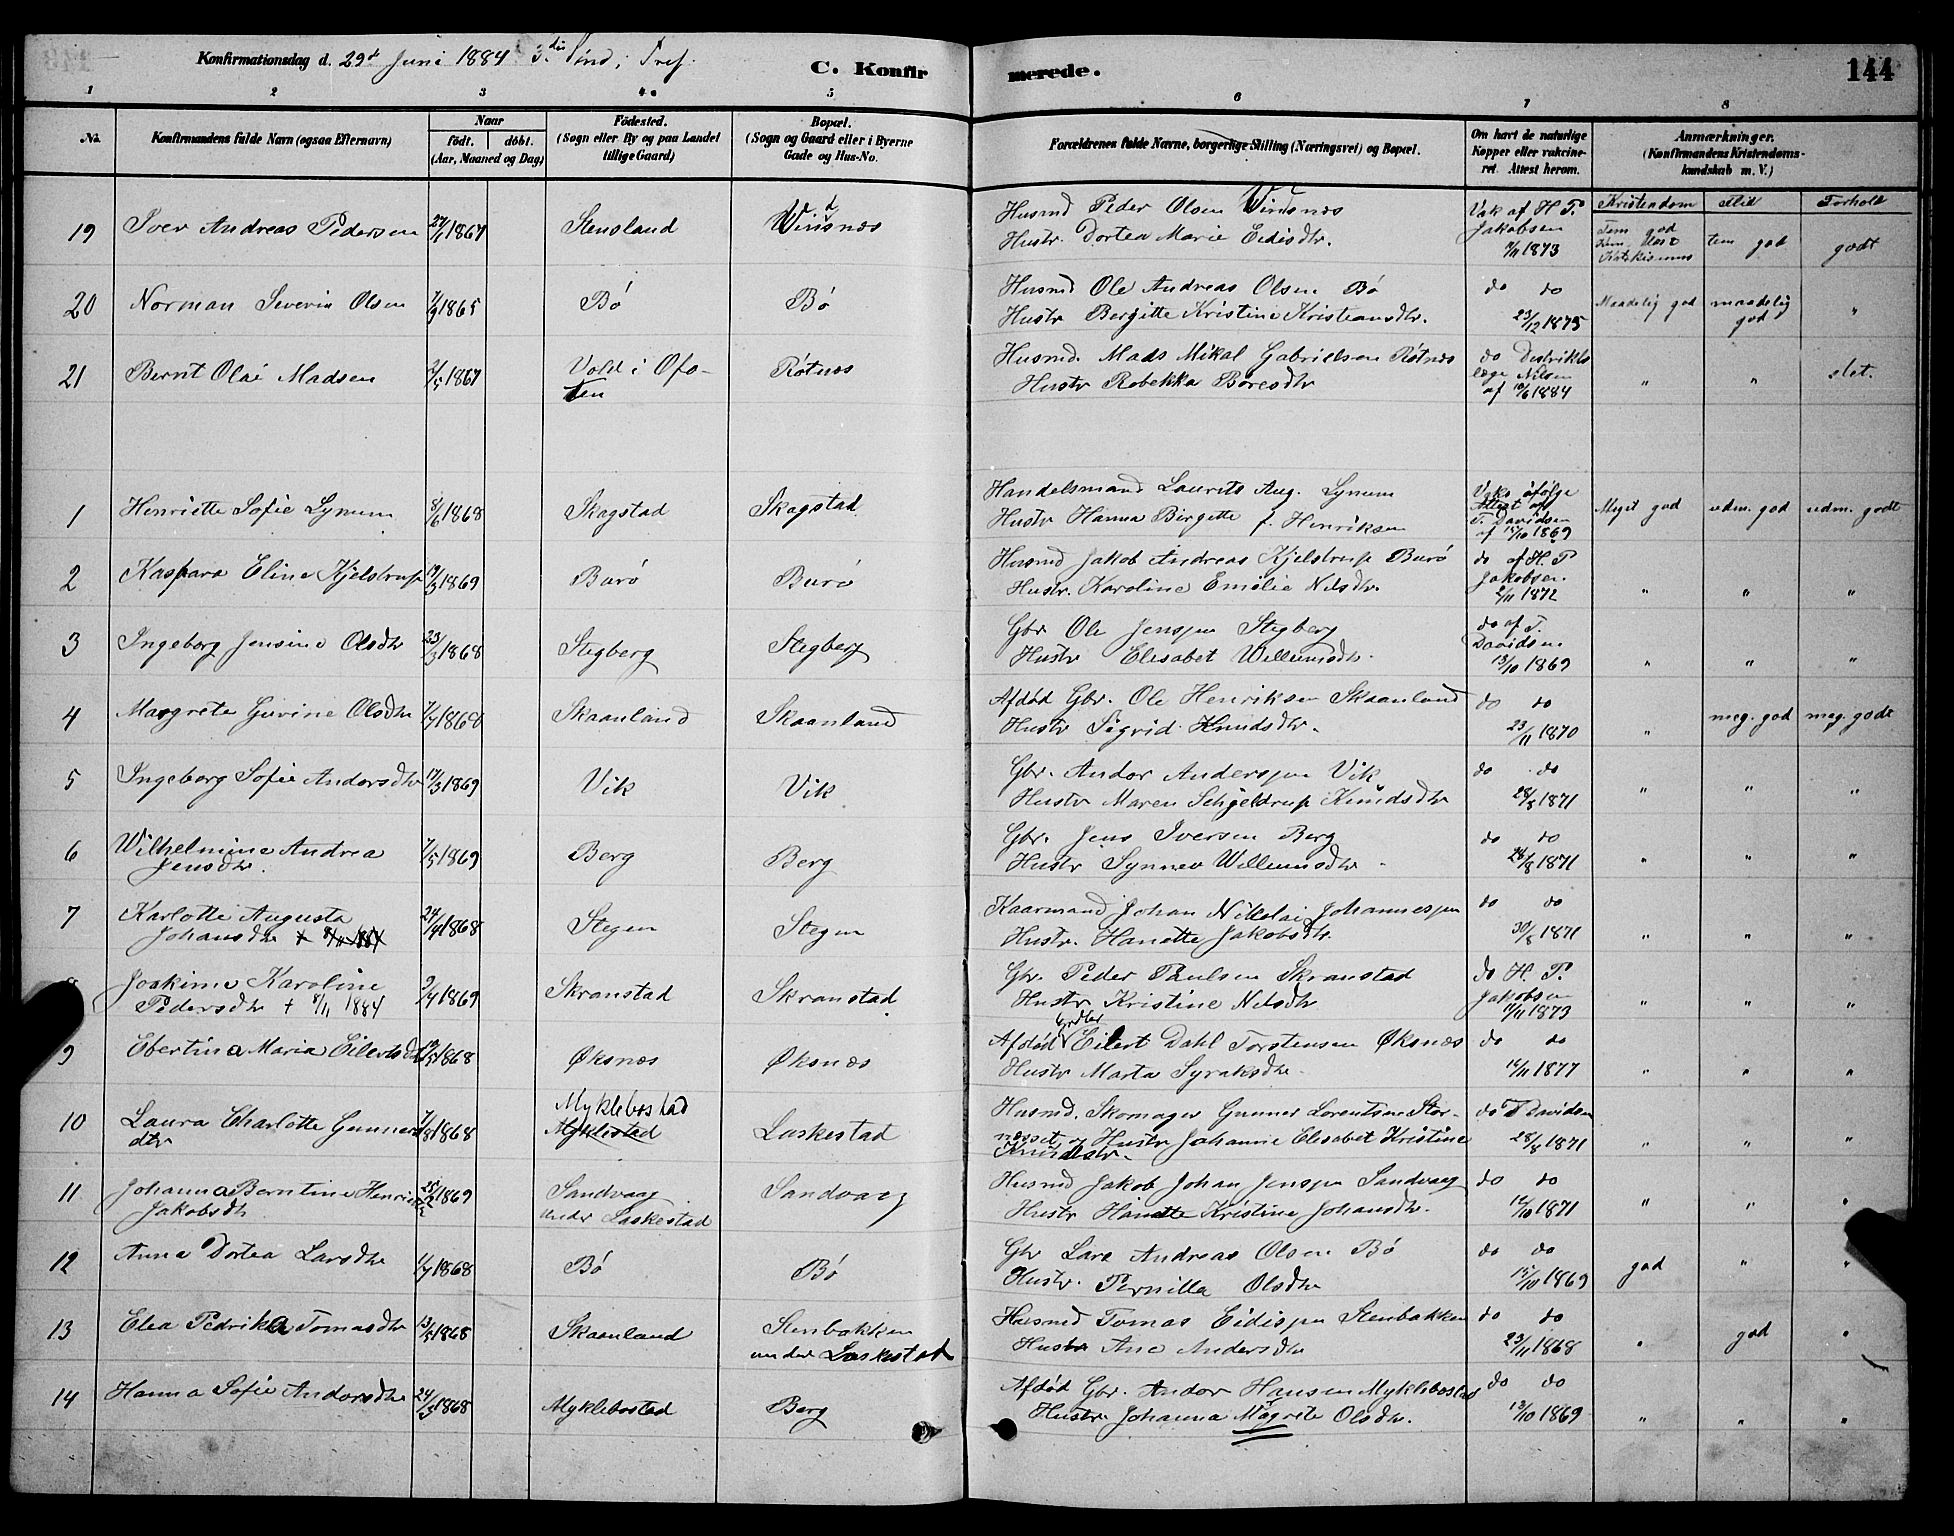 Konfirmationsdag d. 29de Juni 1884 3die Sönd; Tref.
C. Konfirmerede.
144
1 2 3 4 5 6 7 8
No. Konfirmandens fulde Navn (ogsaa Efternavn)
Naar
født. døbt.
(Aar, Maaned og Dag)
Fødested.
(Sogn eller By og paa Landet
tillige Gaard)
Bopæl.
(Sogn og Gaard eller i Byerne
Gade og Hus-No.
Forældrenes fulde Navne, borgerlige Stilling (Næringsvei) og Bopæl.
Om havt de naturlige
Kopper eller vakcine-
ret. Attest herom.
Anmærkninger.
(Konfirmandens Kristendoms-
kundskab m. V.)
Kristendom Flid Forhold
19 Iver Andreas Pedersen 27/1 1867 Stensland Vindsnæs
Husmd Peder Olsen Vindsnæs
Hustr. Dortea Marie Eidisdtr.
Vak af H P. Jakobsen 9/11 1873
tem god godt
20 Norman Severin Olsen 7/3 1865 Bö Bö
Husmd Ole Andreas Olsen Bö
Hustr Bergitte Kristine Kristiansdtr.
do do 23/12 1875
Maadelig god maadelig god "
21 Bernt Olai Madsen 2/5 1867 Vold i Ofo-
ten Rötnæs
Husmd. Mads Mikal Gabrielsen Rötnæs
Hustr Rebekka Boresdtr
do Destrikts
læge Nilsen
af 10/6 1884
" " slet.
1 Henriette Sofie Lynum 8/6 1868 Skagstad Skagstad
Handelsmand Laurits Aug. Lynum
Hustr Hanna Birgitte f. Henriksen
Attest af
T. Davidsen
af 15/10 1869
Meget god udm. god udm. godt
2 Kaspara Eline Kjelstrup 19/3 1869 Burö Burö
Husmd Jakob Andreas Kjelstrup Burö
Hustr. Karoline Emilie Nilsdtr.
do af H. P
Jakobsen
2/11 1872
" " "
3 Ingeborg Jensine Olsdtr 23/3 1868 Stegberg Stegberg
Gbr Ole Jenssen Stegberg
Hustr Elisabet Willumsdtr.
do af T.
Davidsen
13/10 1869
" " "
4 Margrete Gurine Olsdtr 7/7 1868 Skaanland Skaanland
Afdöd Gbr. Ole Henriksen Skaanland
Hustr Sigrid Knudsdtr.
do do
23/11 1870
" meg. god meg. godt
5 Ingeborg Sofie Andorsdtr 17/3 1869 Vik Vik
Gbr. Andor Anderssen Vik
Hustr Maren Schjeldrup Knudsdtr
do do
28/8 1871
" " "
6 Wilhelmine Andrea
Jensdtr. 7/5 1869 Berg Berg
Gbr. Jens Iversen Berg
Hustr Synnev Willumsdtr
do do
28/8 1871
" " "
7 Karlotte Augusta
Johansdtr + 8/11 1884 24/4 1868 Stegen Stegen
Kaarmand Johan Nikolai Johannessen
Hustr. Hanette Jakobsdtr.
do do
30/8 1871
" " "
8 Joakime Karoline
Pedersdtr + 8/11 1884 2/4 1869 Skranstad Skranstad
Gbr. Peder Paulsen Skranstad
Hustr Kristine Nilsdtr
do H. P.
Jakobsen
11/11 1873
" " "
9 Ebertina Maria Eilertsdtr 19/5 1868 Øksnæs Øksnæs
Afdöd Eilert Dahl Torstensen Øksnæs
Hustr Marta Syraksdtr
do do
14/11 1877
" " "
10 Laura Charlotte Gunners
dtr 7/8 1868 Myklebostad
Myklestad Laskestad
Husmd. Skomager Gunner Lorentsen Stor-
næsset og Hustr Johanne Elisabet Kristine
Knudsdtr.
do T Davidsen
28/8 1871
" " "
11 Johanna Berntine Henrikke
Jakobsdtr 25/2 1869 Sandvaag
under Laskestad Sandvaag
Husmd Jakob Johan Jenssen Sandvaag
Hustr Hanette Kristine Johansdtr.
do do
12/10 1871
" " "
12 Anna Dortea Larsdtr 11/7 1868 Bö Bö
Gbr Lars Andreas Olsen Bö
Hustr. Pernilla Olsdtr
do do
15/10 1869
god " "
13 Elea Pedrika Tomasdtr 13/5 1868 Skaanland Stenbakken
under Laskestad
Husmd Tomas Eidissen Stenbakken
Hustr Ane Andersdtr
do do
23/11 1868
" god "
14 Hanna Sofie Andorsdtr 24/3 1868 Myklebostad Berg
Afdöd Gbr. Andor Hansen Myklebostad
Hustr. Johanna Magrete Olsdtr.
do do
13/10 1869
" " "